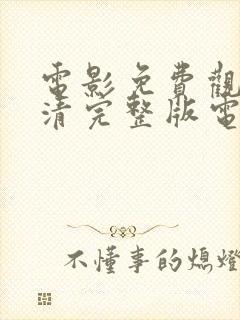 電影免費觀
清完整版電
不懂事的熄燈